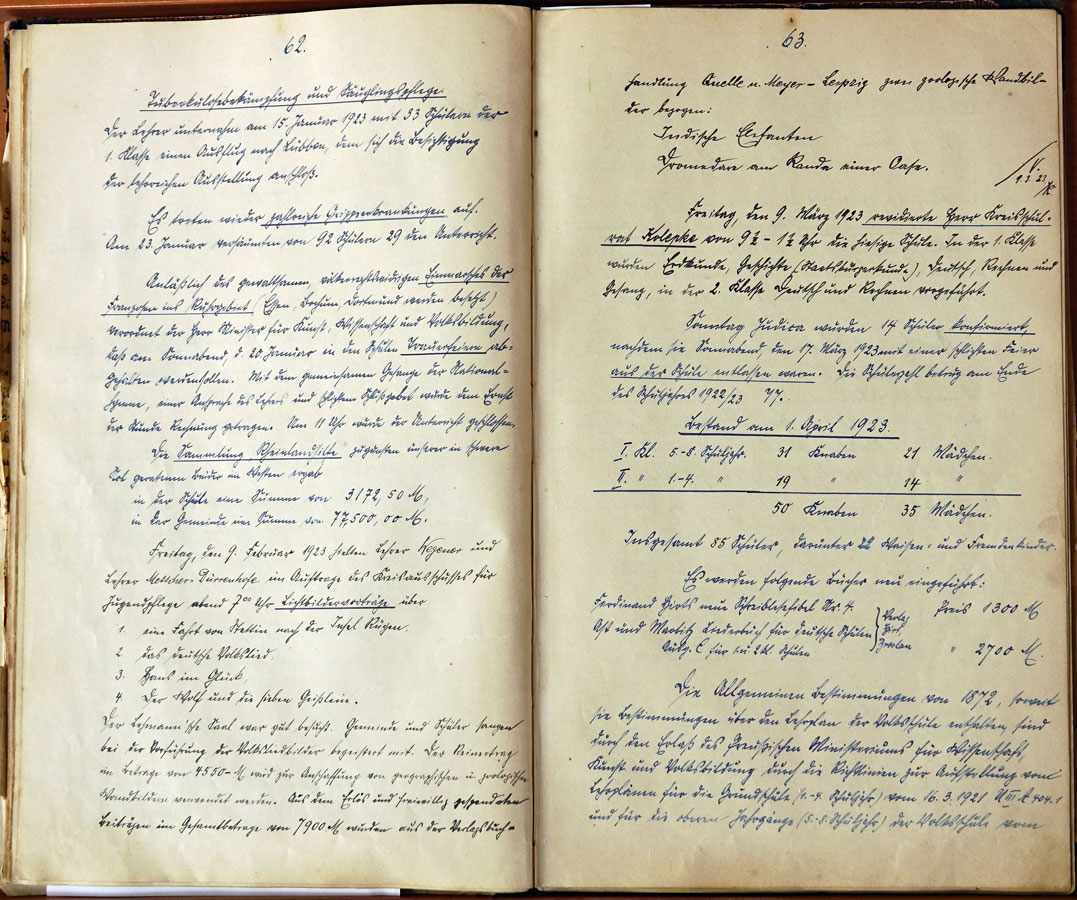 62.
Tuberkulosebekämpfung und Säuglingspflege.
Der Lehrer unternahm am 15. Januar 1923 mit 33 Schülern der
1. Klasse einen Ausflug nach Lübben, dem sich die Besichtigung
der lehrreichen Ausstellung anschloß.
Es treten wieder zahlreiche Grippeerkrankungen auf.
Am 23. Januar versäumten von 92 Schülern 29 den Unterricht.
Anläßlich des gewaltsamen, völkerrechtswidrigen Einmarsches der
Franzosen ins Ruhrgebiet (Essen Bochum Dortmund werden besetzt)
verordnet der Herr Minister für Kunst, Wissenschaft und Volksbildung,
daß am Sonnabend, d 20 Januar in den Schulen Trauerfeiern ab-
gehalten werden sollen. Mit dem gemeinsamen Gesange der National-
hymne, einer Ansprache des Lehrers und Schlußgebet wurde dem Ernst
der Stunde Rechnung getragen. Um 11 Uhr wurde der Unterricht geschlossen.
Die Sammlung "Rheinlandhilfe" zugunsten unserer in schwere
Not geratenen Brüder im Westen ergab
in der Schule eine Summe von 3172,50 M,
in der Gemeinde eine Summe von 77,500,00 M.
Freitag, den 9. Februar 1923 hielten Lehrer Wegener und
Lehrer Mettcher-Dürrenhofe im Auftrage des Kreisausschusses für
Jugendpflege abend 7⁰⁰ Uhr Lichtbildervorträge über
1. eine Fahrt von Stettin nach der Insel Rügen.
2 das deutsche Volkslied.
3. Hans im Glück
4. Der Wolf und die sieben Geißlein.
Der Lehmannsche Saal war gut besucht. Gemeinde und Schüler sangen
bei der Vorführung der Volksliedbilder begeistert mit. Der Reinertrag
im Betrage von 4550-M wird zur Anschaffung von geographischen u. zoologischen
Wandbildern verwendet werden. Aus dem Erlös und freiwillig gespendeten
Beiträgen im Gesamtbetrage von 7900 M wurden aus der Verlagsbuch-
63.
handlung Quelle u. Meyer-Leipzig zwei zoologische Wandbil-
der bezogen:
Indische Elefanten
Dromedare am Rande einer Oase.
V.
9.3.23
K
Freitag, den 9. März 1923 revidierte Herr Kreisschul-
rat Kolepke von 9½-1½ Uhr die hiesige Schule. In der 1. Klasse
wurden Erdkunde, Geschichte, (Staatsbürgerkunde), Deutsch, Rechnen und
Gesang, in der 2. Klasse Deutsch und Rechnen vorgeführt.
Sonntag Judica wurden 14 Schüler konfirmiert,
nachdem sie Sonnabend, den 17. März 1923 mit einer schlichten Feier
aus der Schule entlassen waren. Die Schülerzahl betrug am Ende
des Schuljahres 1922/23 77.
Bestand am 1. April 1923.
I. Kl. 5.-8. Schuljahr. 31 Knaben 21 Mädchen.
II. " 1.-4. " 19 " 14 "
50 Knaben 35 Mädchen.
Insgesamt 85 Schüler, darunter 22 Waisen- und Fremdenkinder.
Es werden folgende Bücher neu eingeführt:
Ferdinand Hirts neue Schreiblesefibel Nr. 4. Preis 1300 M
Ost und Martitz Liederbuch für deutsche Schulen
Ausg. C für 1 u. 2 kl. Schulen " 2700 M.
Verlag
Hirt,
Breslau
Die Allgemeinen Bestimmungen von 1872, soweit
sie Bestimmungen über den Lehrplan der Volksschule enthalten, sind
durch den Erlaß des Preußischen Ministeriums für Wissenschaft,
Kunst und Volksbildung durch die Richtlinien zur Aufstellung von
Lehrplänen für die Grundschule (1.-4. Schuljahr) vom 16.3.1921 U III A 404.1
und für die oberen Jahrgänge (5.-8. Schuljahr) der Volksschule vom